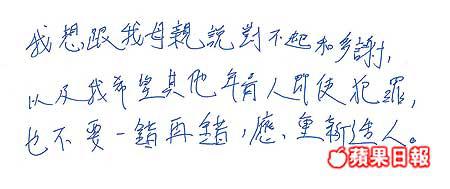 我想跟我母親說對不起和多謝，
以及我希望其他年青人即使犯罪，
也不要一錯再錯，應、重新造人。
蘋果日報